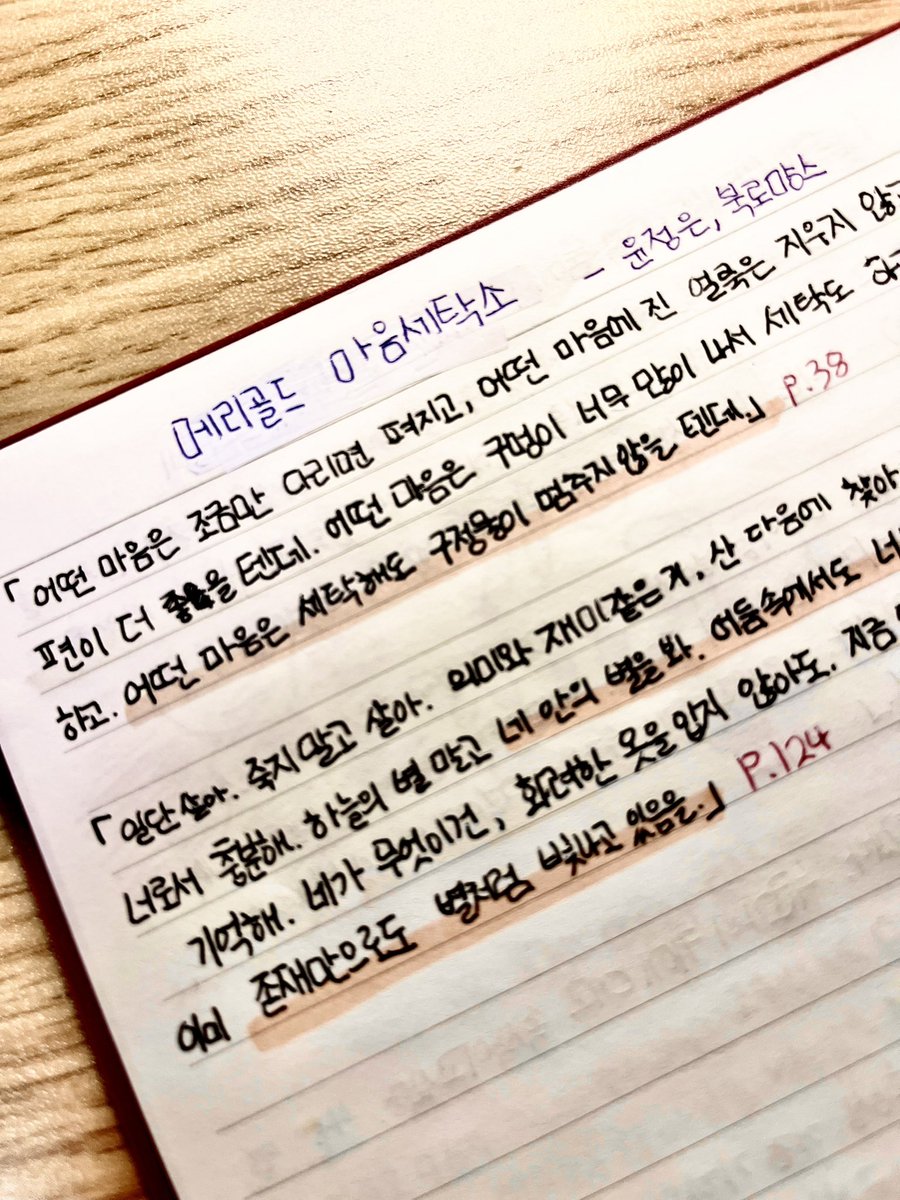 메리골드 마음세탁소 - 윤정은, 북로망스
「어떤 마음은 조금만 다리면 펴지고, 어떤 마음에 진 얼룩은 지우지 않
편이 더 좋을 텐데. 어떤 마음은 구멍이 너무 많이 나서 세탁도
하고. 어떤 마음은 세탁해도 구정물이 멈추지 않을 텐데.」 P.38
「일단 살아. 죽지 말고 살아. 의미와 재미같은거, 산 다음에 찾아
너로서 충분해. 하늘의 별 말고 네 안의 별을 봐. 어둠속에서도
기억해. 네가 무엇이건, 화려한 옷을 입지 않아도. 지금
이미 존재만으로도 별처럼 빛나고 있음을.」 P.124